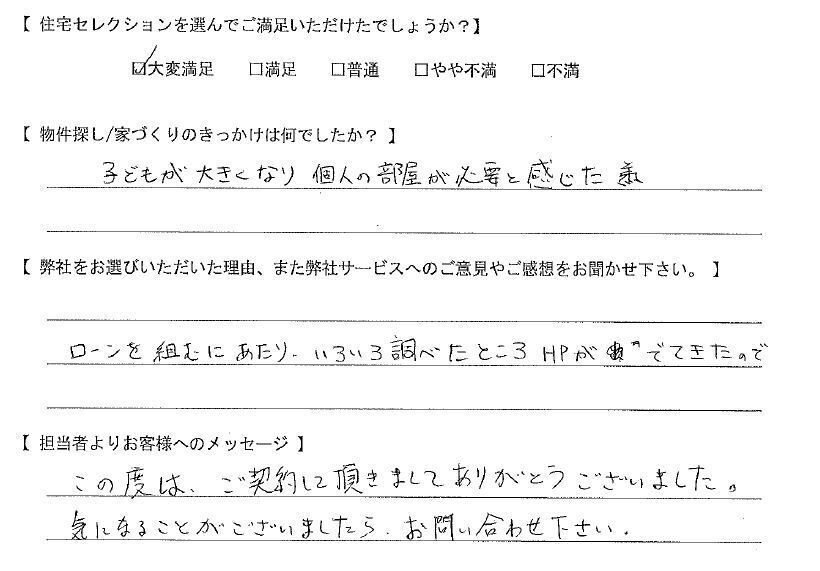 【 住宅セレクションを選んでご満足いただけたでしょうか？】
☑大変満足 □満足 □普通 □やや不満 □不満
【 物件探し/家づくりのきっかけは何でしたか？ 】
子どもが大きくなり 個人の部屋が必要と感じた
【 弊社をお選びいただいた理由、また弊社サービスへのご意見やご感想をお聞かせ下さい。 】
ローンを組むにあたり、いろいろ調べたところ HPが でてきたので
【 担当者よりお客様へのメッセージ 】
この度は、ご契約して頂きましてありがとうございました。
気になることがございましたら、お問い合わせ下さい。